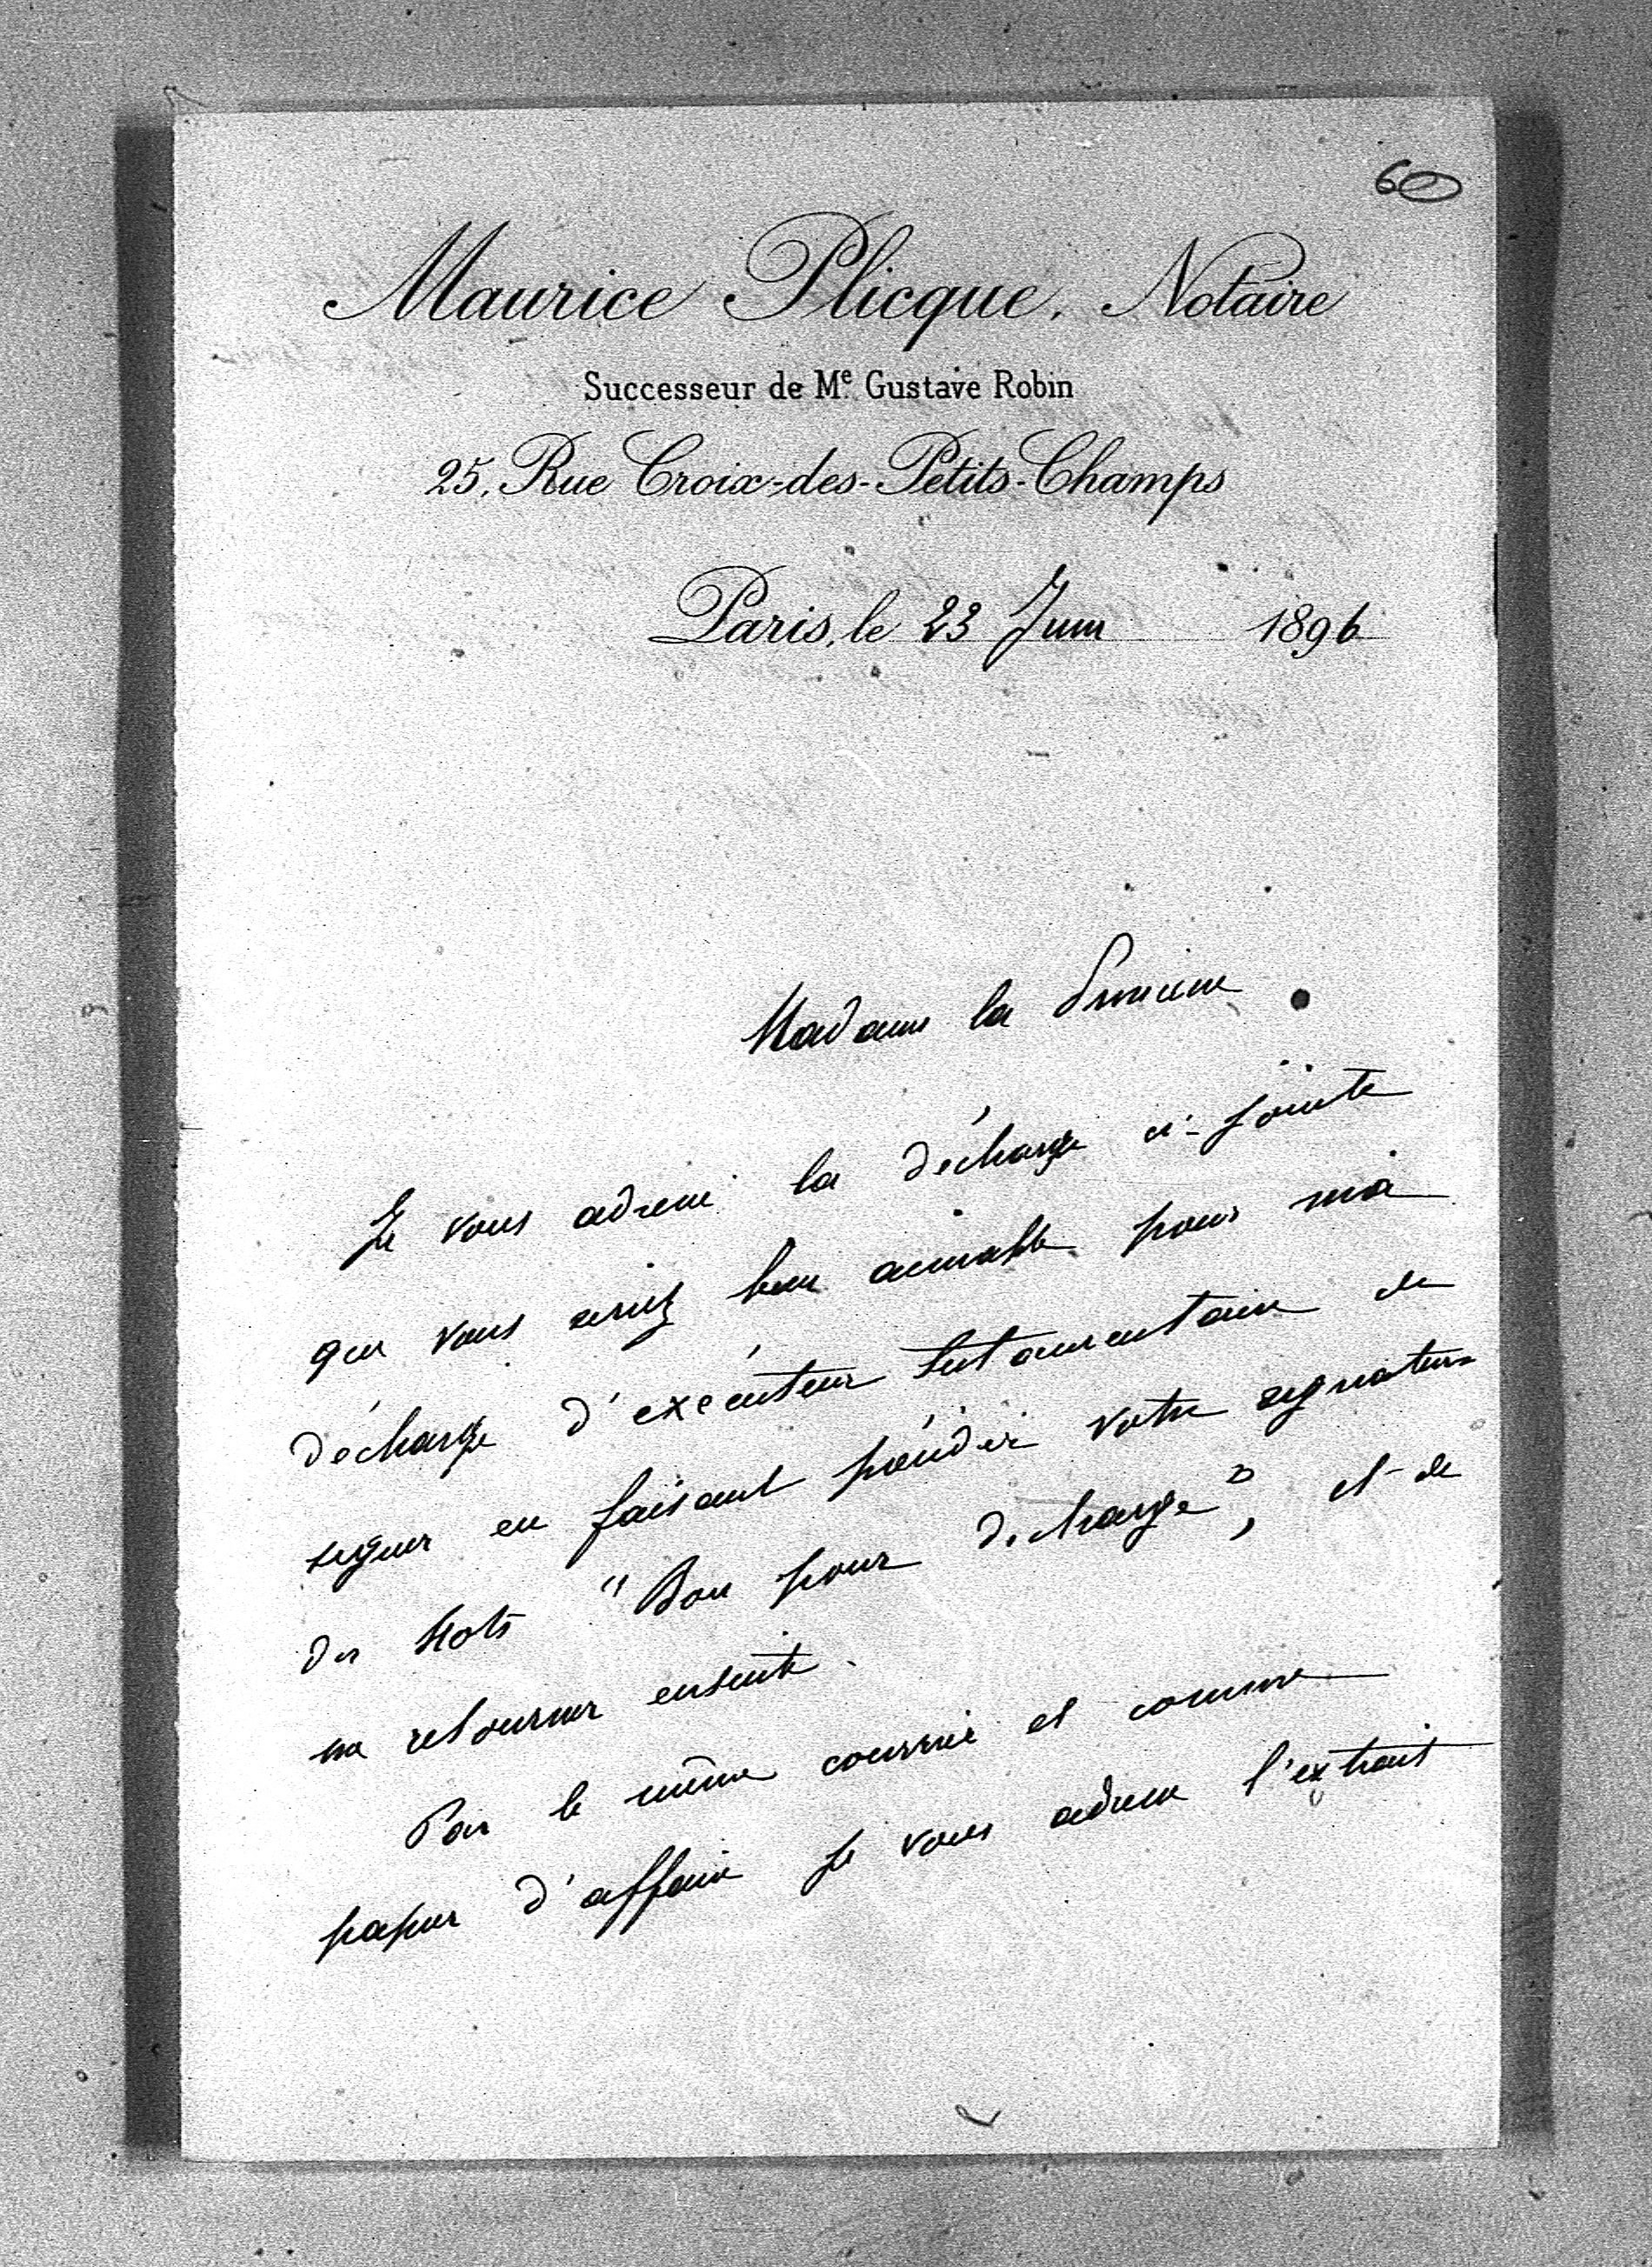 60
Maurice Plicque, Notaire
Successeur de Me Gustave Robin
25, Rue Croix-des-Petits-Champs
Paris, le 23 Juin 1896
Madame la Princesse
Je vous adresse la décharge ci-jointe
que vous seriez bien aimable pour ma
décharge d'exécuteur testamentaire de
signer en faisant précéder votre signature
des Mots "Bon pour décharge", et de
me retourner ensuite.
Par le même courrier et comme
papier d'affaire je vous adresse l'extrait